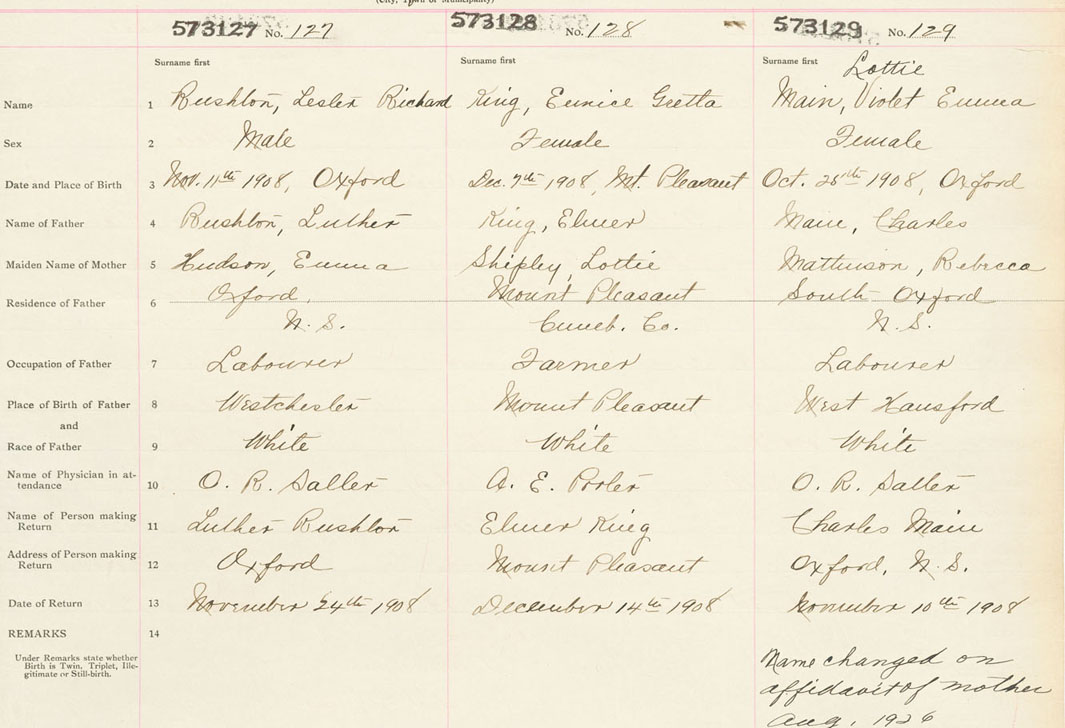 (City, Town or Municipality)
573127 No. 127 573128 No. 128 573129 No. 129
Surname first Surname first Surname first Lottie
Name 1 Rushton, Lesler Richard King, Eunice Gretta Main, Violet Emma
Sex 2 Male Female Female
Date and Place of Birth 3 Nov. 11th 1908, Oxford Dec. 7th 1908, Mt. Pleasant Oct. 25th 1908, Oxford
Name of Father 4 Rushton, Luther King, Elmer Main, Charles
Maiden Name of Mother 5 Hudson, Emma Shipley, Lottie Mattinson, Rebecca
Residence of Father 6 Oxford, Mount Pleasant South Oxford
N. S. Cumb. Co. N. S.
Occupation of Father 7 Labourer Farmer Labourer
Place of Birth of Father 8 Westchester Mount Pleasant West Hansford
and
Race of Father 9 White White White
Name of Physician in at-
tendance 10 O. R. Salter A. E. Porter O. R. Salter
Name of Person making
Return 11 Luther Rushton Elmer King Charles Main
Address of Person making
Return 12 Oxford Mount Pleasant Oxford, N. S.
Date of Return 13 November 24th 1908 December 14th 1908 November 10th 1908
REMARKS 14
Under Remarks state whether
Birth is Twin, Triplet, Ille-
gitimate or Still-birth.
Name changed on
affidavit of mother
Aug, 1926